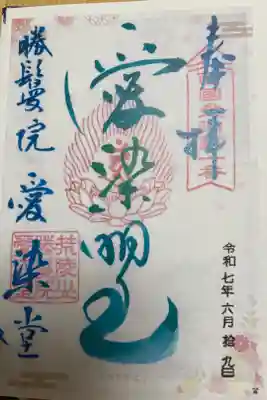 奉拝
愛染明王
勝鬘院愛染堂
令和七年六月拾九日